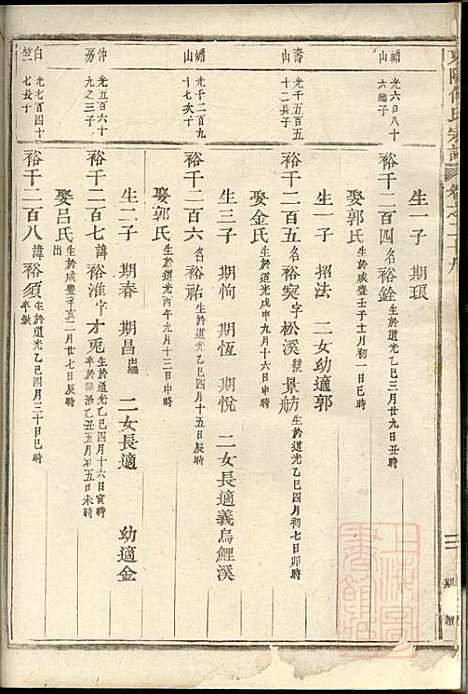 東陽何氏宗譜
生一子 期瑱
繡山 光六百八十六繼子
裕千二百四 名裕銓 生於道光乙巳三月廿九日丑時
娶郭氏 生於咸豐壬子十月初一日巳時
生一子 招法 二女幼適郭
壽山 光千五百五十二長子
裕千二百五 名裕宲字松溪號景舫 生於道光乙巳四月初七日卯時
娶金氏 生於道光戊申九月十六日申時
生三子 期恂 期恆 期悅 二女長適義烏鯉溪
繡山 光千二百九十七次子
裕千二百六 名裕祐 生於道光乙巳四月十五日辰時
娶郭氏 生於道光丙午九月十三日申時
生二子 期春 期昌出繼 二女長適 幼適金
仲房 光五百六十九之三子
裕千二百七 諱裕淮字才兎 生於道光乙巳四月十六日寅時 卒於同治乙丑五月初五日未時
娶呂氏 生於咸豐辛亥二月廿七日辰時 出
白竺 光七百四十七長子
裕千二百八 諱裕須 生於道光乙巳四月三十日巳時 卒缺
期